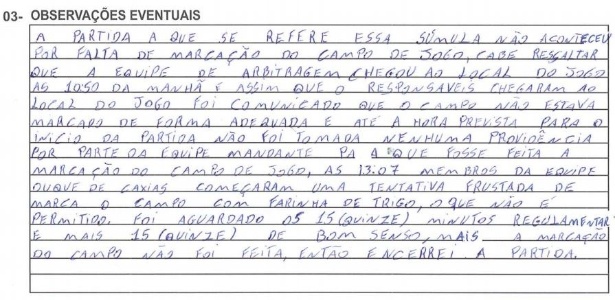 03- OBSERVAÇÕES EVENTUAIS
A PARTIDA A QUE SE REFERE ESSA SÚMULA NÃO ACONTECEU
POR FALTA DE MARCAÇÃO DO CAMPO DE JOGO, CABE RESSALTAR
QUE A EQUIPE DE ARBITRAGEM CHEGOU AO LOCAL DO JOGO
AS 10:50 DA MANHÃ E ASSIM QUE O RESPONSAVEIS CHEGARAM AO
LOCAL DO JOGO FOI COMUNICADO QUE O CAMPO NÃO ESTAVA
MARCADO DE FORMA ADEQUADA E ATÉ A HORA PREVISTA PARA O
INÍCIO DA PARTIDA NÃO FOI TOMADA NENHUMA PROVIDÊNCIA
POR PARTE DA EQUIPE MANDANTE PA A QUE FOSSE FEITA A
MARCAÇÃO DO CAMPO DE JOGO, AS 13:07 MEMBROS DA EQUIPE
DUQUE DE CAXIAS COMEÇARAM UMA TENTATIVA FRUSTADA DE
MARCA O CAMPO COM FARINHA DE TRIGO, O QUE NÃO É
PERMITIDO. FOI AGUARDADO OS 15 (QUINZE) MINUTOS REGULAMENTAR
E MAIS 15 (QUINZE) DE BOM SENSO, MAIS A MARCAÇÃO
DO CAMPO NÃO FOI FEITA, ENTÃO ENCERREI A PARTIDA.